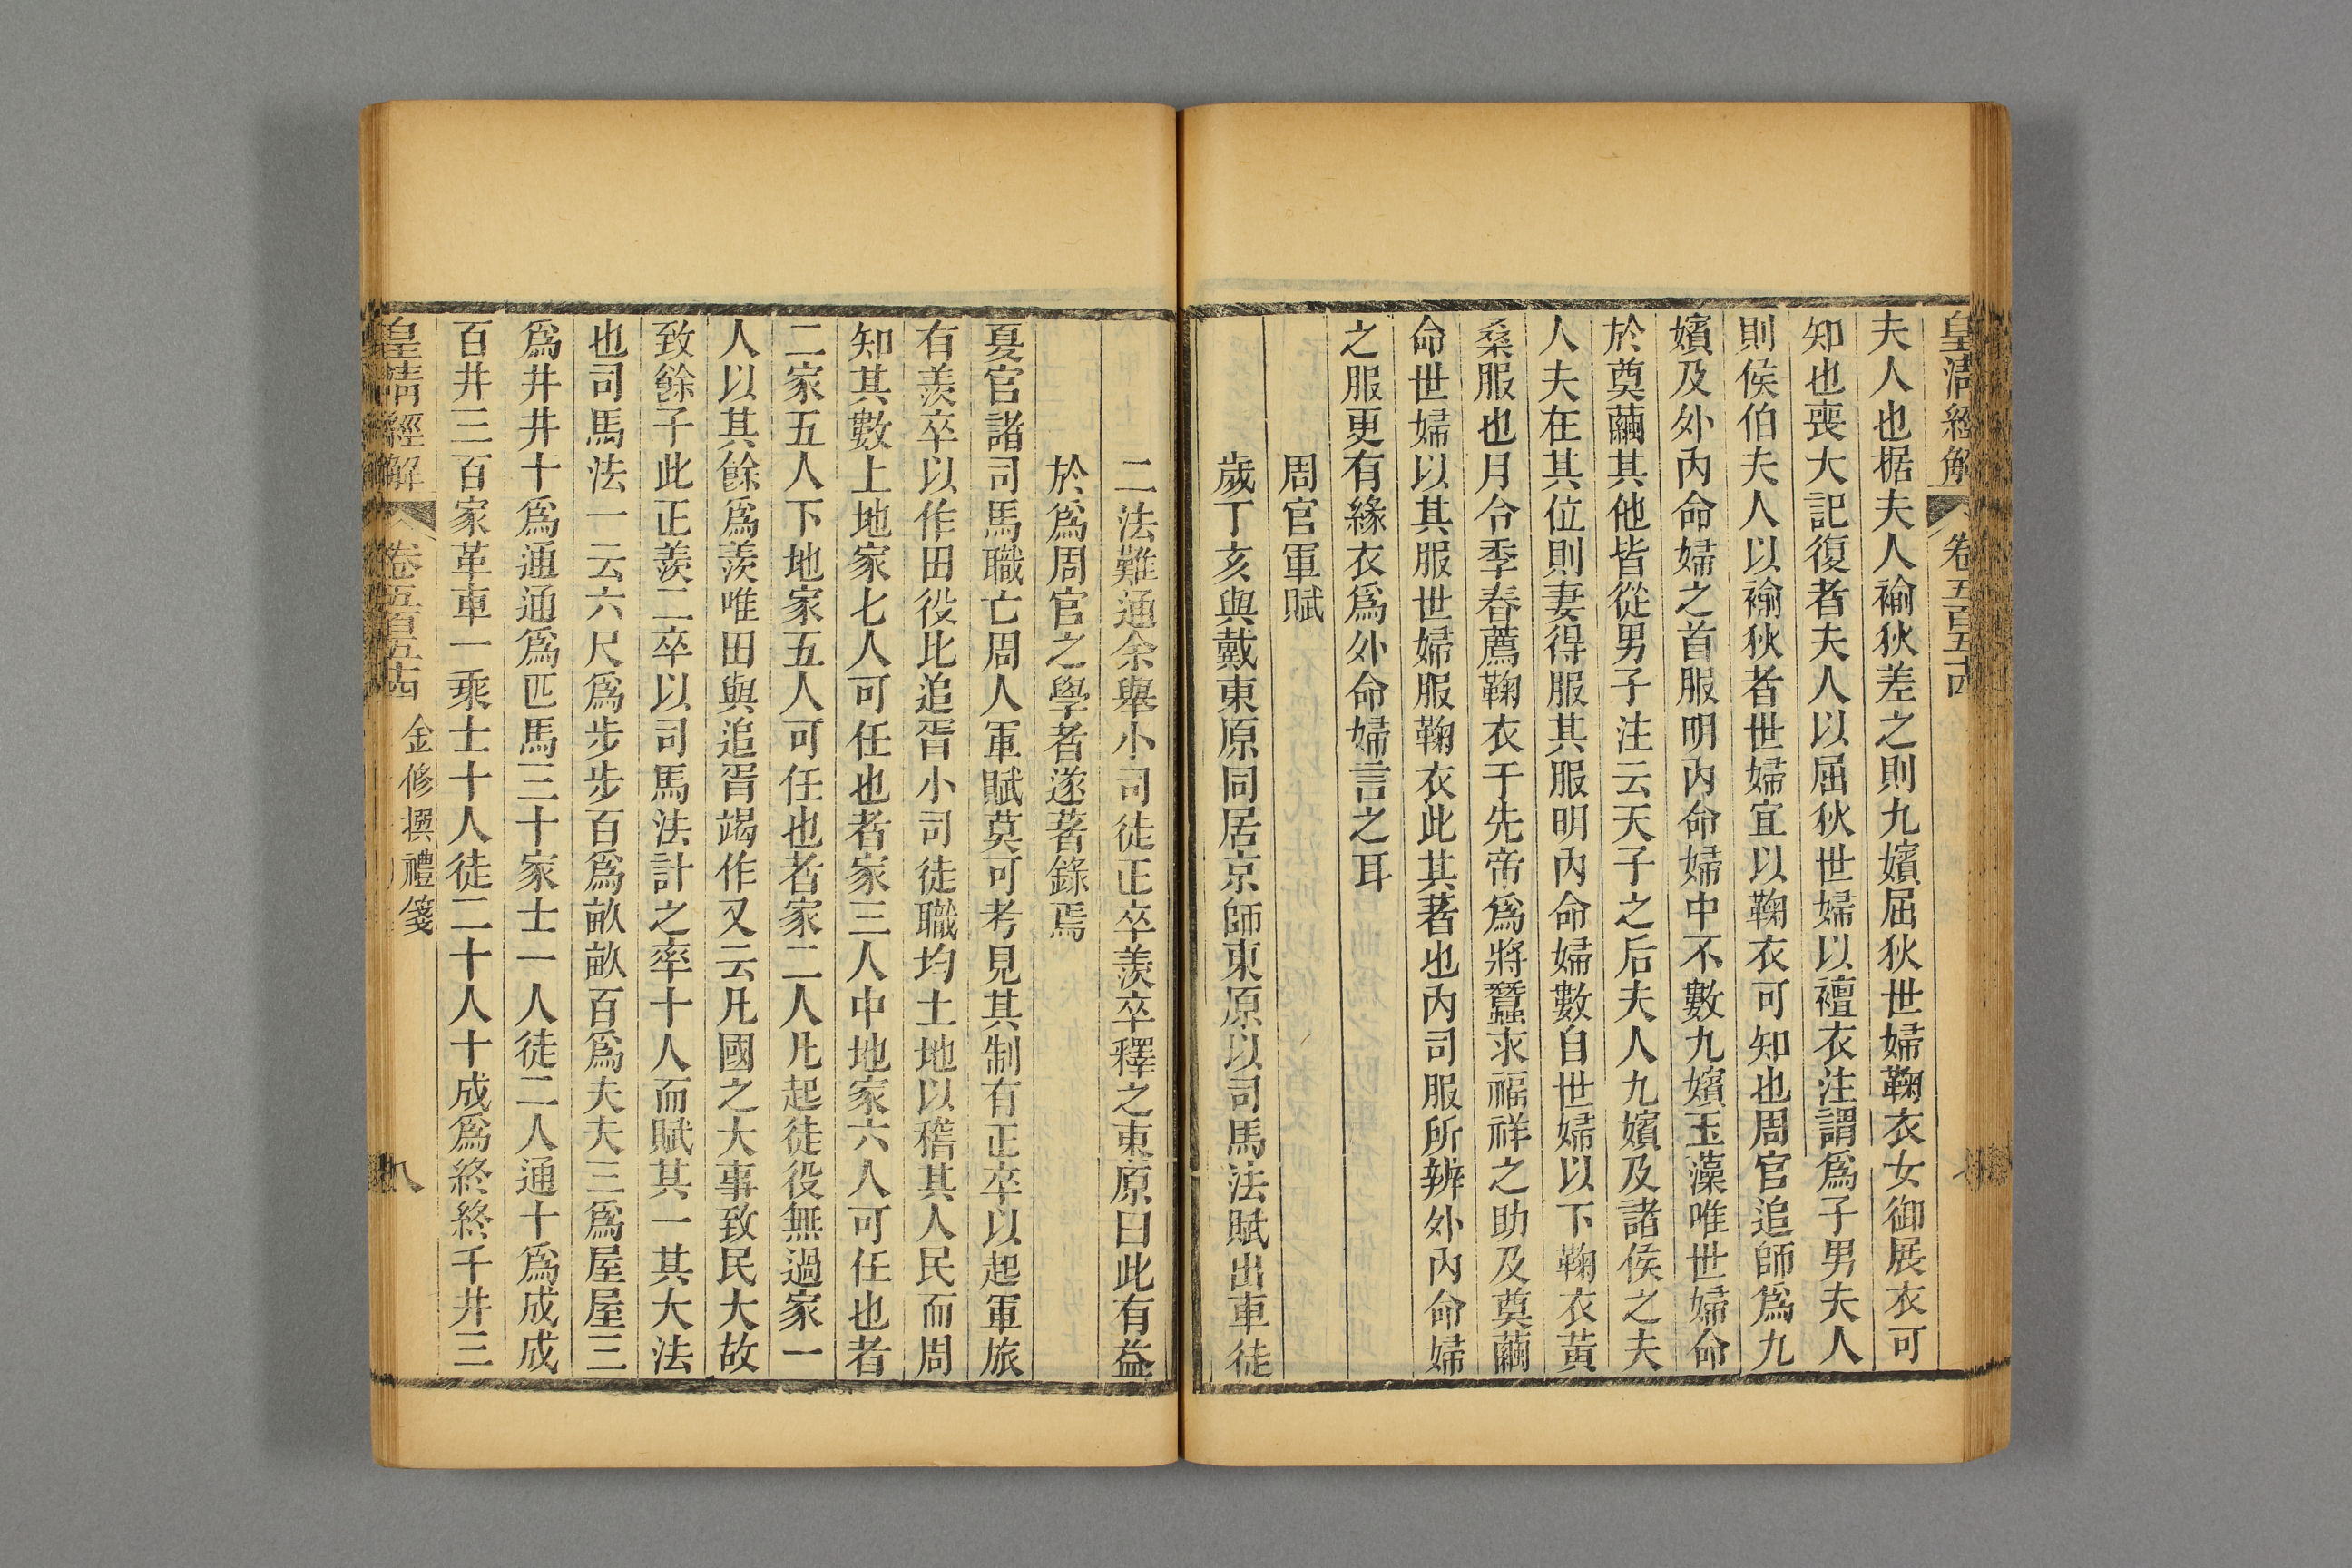 皇清經解 卷五百五十四
夫人也据夫人褕狄差之則九嬪屈狄世婦鞠衣女御展衣可
知也喪大記復者夫人以屈狄世婦以襢衣注謂爲子男夫人
則侯伯夫人以褕狄者世婦宜以鞠衣可知也周官追師爲九
嬪及外內命婦之首服明內命婦中不數九嬪玉藻唯世婦命
於奠繭其他皆從男子注云天子之后夫人九嬪及諸侯之夫
人夫在其位則妻得服其服明內命婦數自世婦以下鞠衣黃
桑服也月令季春薦鞠衣于先帝爲將蠶求福祥之助及奠繭
命世婦以其服世婦服鞠衣此其著也內司服所辨外內命婦
之服更有緣衣爲外命婦言之耳
周官軍賦
歲丁亥與戴東原同居京師東原以司馬法賦出車徒
二法難通余舉小司徒正卒羨卒釋之東原曰此有益
於爲周官之學者遂著錄焉
夏官諸司馬職亡周人軍賦莫可考見其制有正卒以起軍旅
有羨卒以作田役比追胥小司徒職均土地以稽其人民而周
知其數上地家七人可任也者家三人中地家六人可任也者
二家五人下地家五人可任也者家二人凡起徒役無過家一
人以其餘爲羨唯田與追胥竭作又云凡國之大事致民大故
致餘子此正羨二卒以司馬法計之率十人而賦其一其大法
也司馬法一云六尺爲步步百爲畝畝百爲夫夫三爲屋屋三
爲井井十爲通通爲匹馬三十家士一人徒二人通十爲成成
百井三百家革車一乘士十人徒二十人十成爲終終千井三
皇清經解 卷五百五十四 金修撰禮箋 八